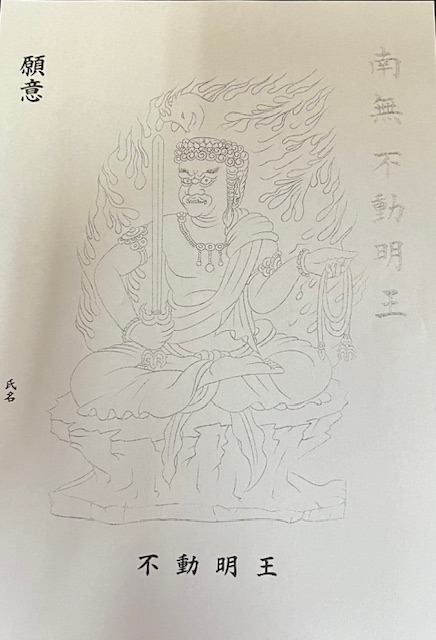 南無不動明王
願意
氏名
不動明王